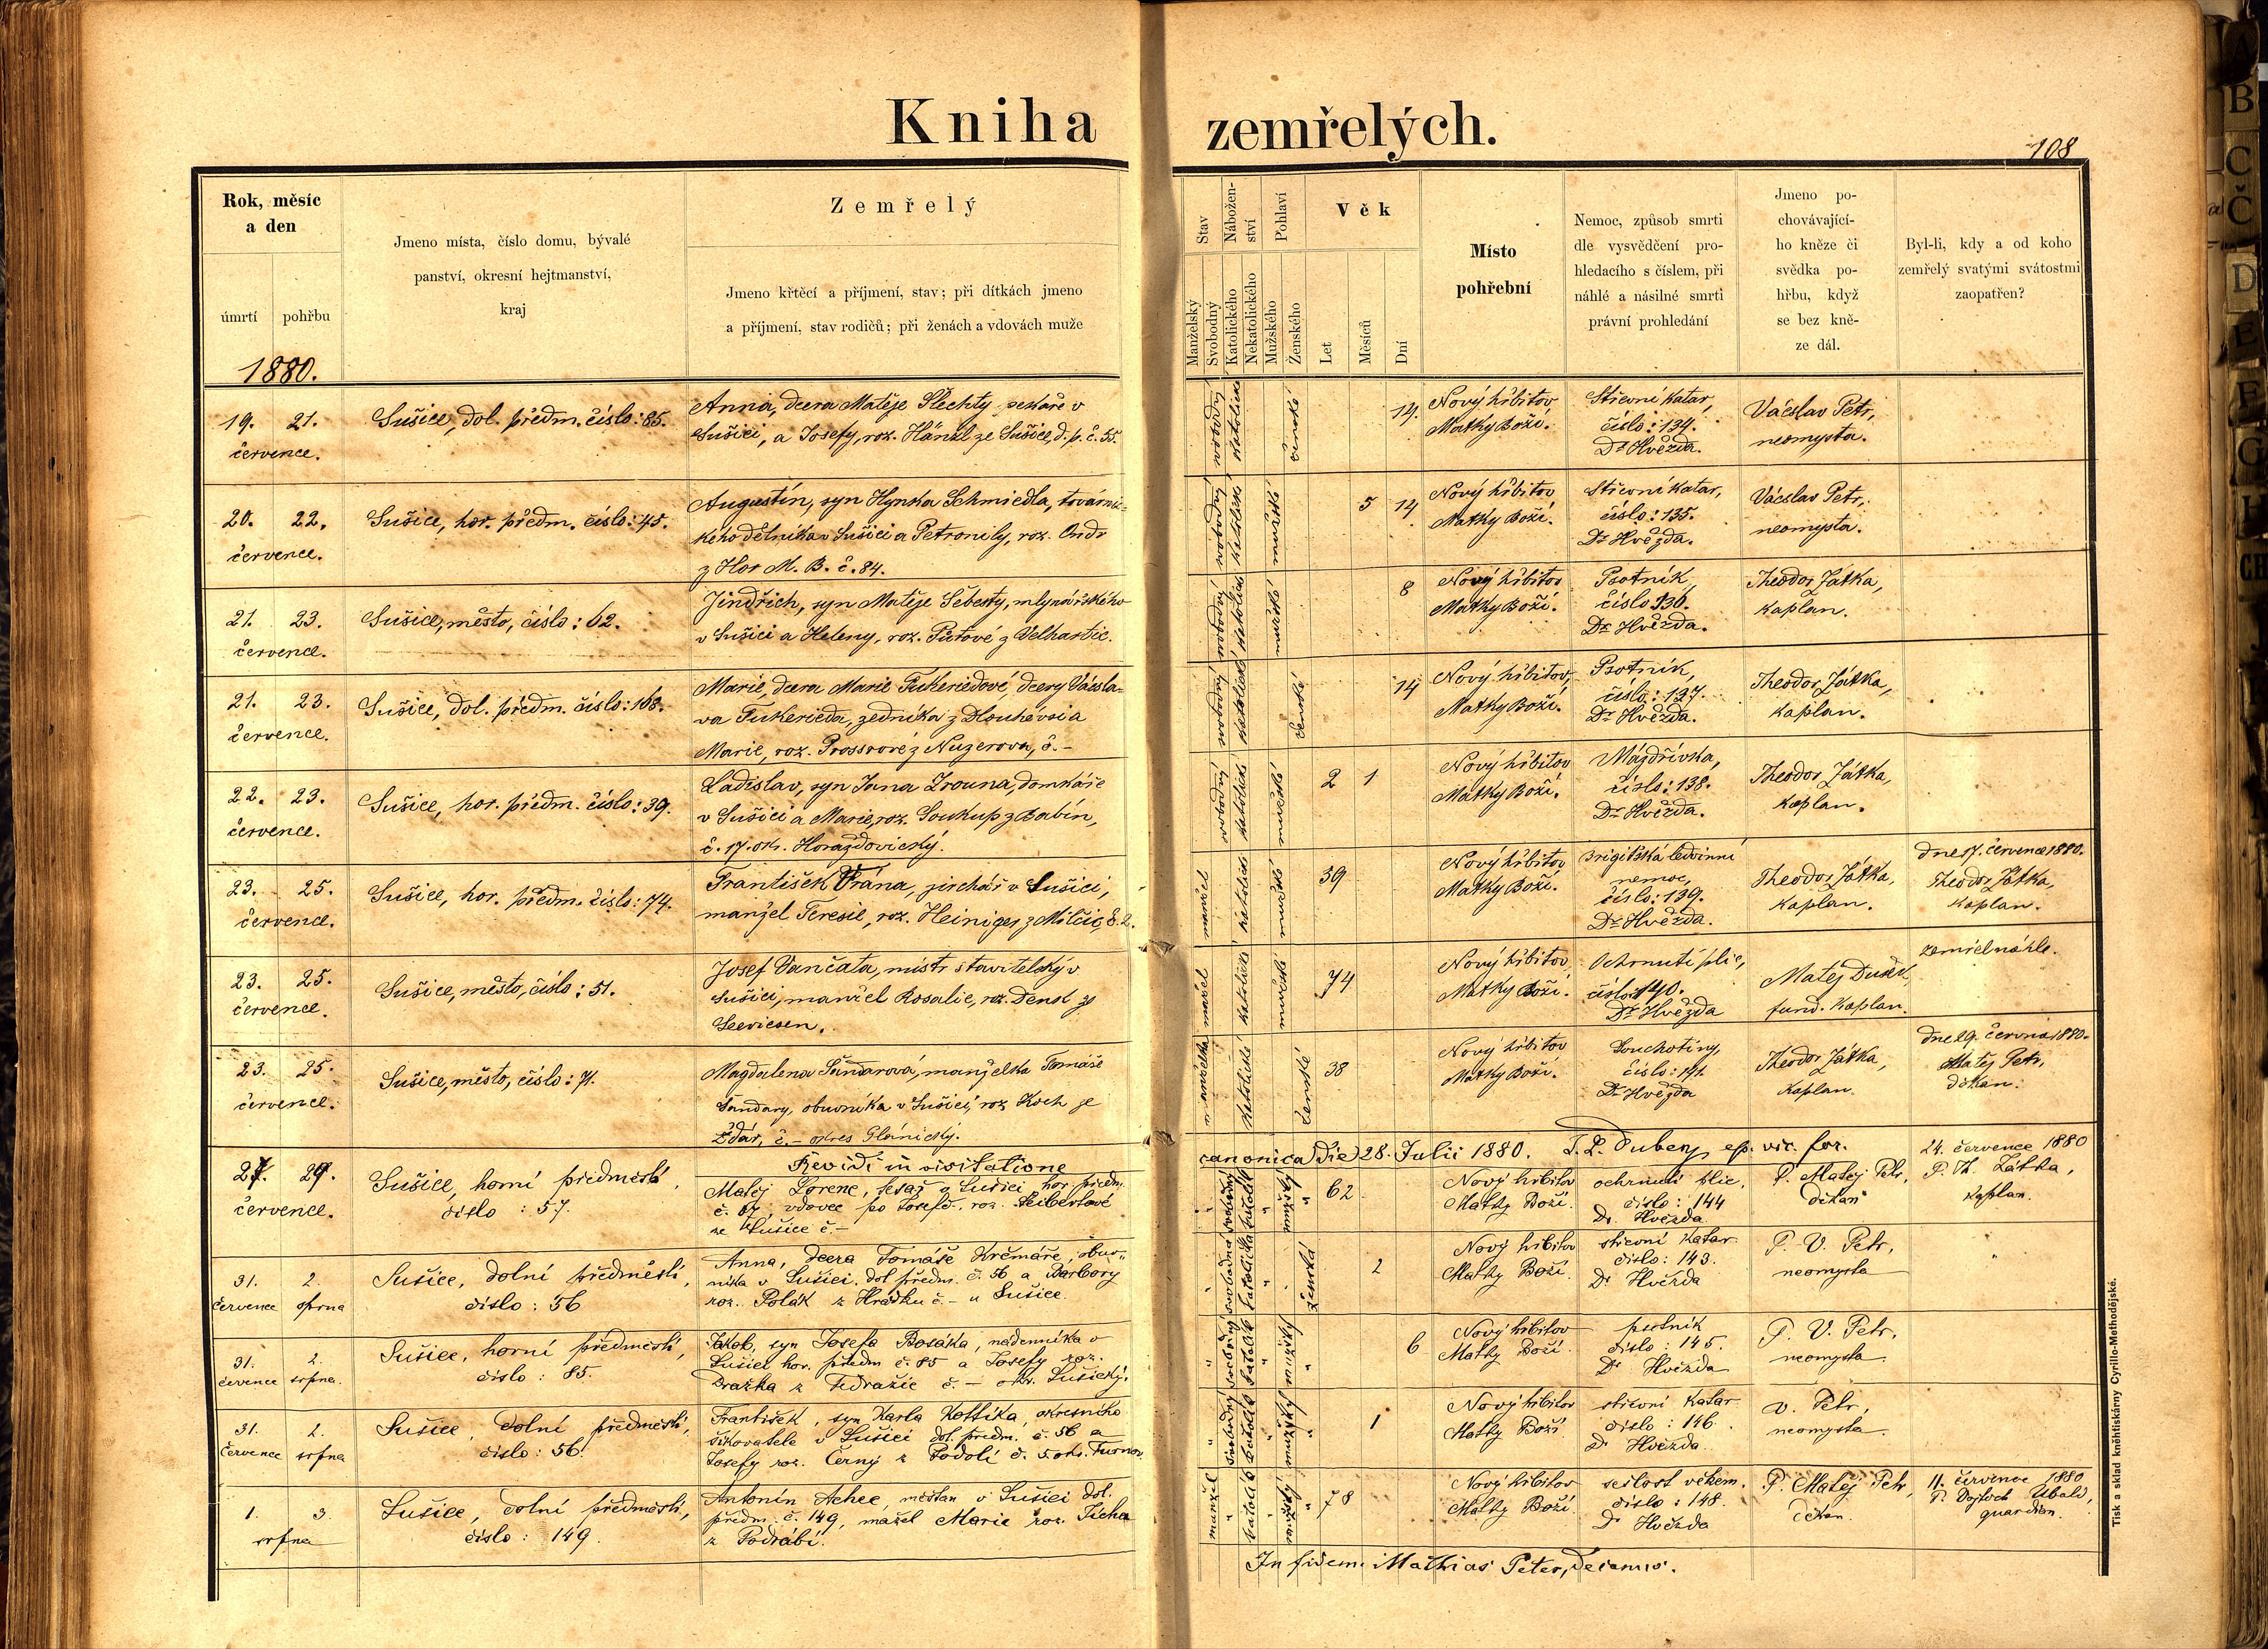 Kniha zemřelých.
108
Rok, měsíc
a den
úmrtí
pohřbu
Jmeno místa, číslo domu, bývalé
panství, okresní hejtmanství,
kraj
Zemřelý
Jmeno křtěcí a příjmení, stav; při dítkách jmeno
a příjmení, stav rodičů; při ženách a vdovách muže
Stav
Nábožen-
ství
Pohlaví
Věk
Manželský
Svobodný
Katolického
Nekatolického
Mužského
Ženského
Let
Měsíců
Dní
Místo
pohřební
Nemoc, způsob smrti
dle vysvědčení pro-
hledacího s číslem, při
náhlé a násilné smrti
právní prohledání
Jmeno po-
chovávající-
ho kněze či
svědka po-
hřbu, když
se bez kně-
ze dál.
Byl-li, kdy a od koho
zemřelý svatými svátostmi
zaopatřen?
1880.
19. 21.
července.
Sušice, dol. předm. číslo: 85.
Anna, dcera Matěje Šlechty pekaře v
Sušici, a Josefy, roz. Hänzl ze Sušice, d. p. č. 55.
svobodný
katolické
ženské
14.
Nový hřbitov
Matky Boží.
Střevní katar,
číslo: 134.
Dr Hvězda.
Vácslav Petr,
neomysta.
20. 22.
července.
Sušice, hor. předm. číslo: 45.
Augustín, syn Hynka Schmiedla, továrnic-
kého dělníka v Sušici a Petronily, roz. Ondr
z Hor M. B. č. 84.
svobodný
katolické
mužské
5 14
Nový hřbitov
Matky Boží.
Střevní katar,
číslo: 135.
Dr Hvězda.
Vácslav Petr,
neomysta.
21. 23.
července.
Sušice, město, číslo: 62.
Jindřich, syn Matěje Šebesty, mlynářského
v Sušici a Heleny, roz. z Velhartic.
svobodný
katolické
mužské
8
Nový hřbitov
Matky Boží.
Psotník,
číslo 136.
Dr Hvězda.
Theodor Játka,
kaplan.
21. 23.
července.
Sušice, dol. předm. číslo: 168.
Marie, dcera Marie Fukeriedové, dcery Vácsla-
va Fukerieda, zedníka z Dlouhévsi a
Marie, roz. Prossrové z Nuzerova, č. –
svobodný
katolické
ženské
14
Nový hřbitov,
Matky Boží.
Psotník,
číslo: 137.
Dr Hvězda.
Theodor Játka,
kaplan.
22. 23.
července.
Sušice, hor. předm. číslo: 39.
Ladislav, syn Jana Zrouna, domkáře
v Sušici a Marie, roz. Soukup z Babín,
č. 17. okr. Horažďovický.
svobodný
katolické
mužské
2 1
Nový hřbitov
Matky Boží.
Mázdřivka,
číslo: 138.
Dr Hvězda.
Theodor Játka,
kaplan.
23. 25.
července.
Sušice, hor. předm. číslo: 74.
František Vrána, jirchář v Sušici,
manžel Teresie, roz. Heiniger z Milčic, č. 2.
manžel
katolické
mužské
39
Nový hřbitov
Matky Boží.
Brigitská ledvinní
nemoc,
číslo: 139.
Dr Hvězda.
Theodor Játka,
kaplan.
dne 17. července 1880.
Theodor Játka,
kaplan.
23. 25.
července.
Sušice, město, číslo: 51.
Josef Vančata, mistr stavitelský v
Sušici, manžel Rosalie, roz. Denk z
Seewiesen.
manžel
katolické
mužské
74
Nový hřbitov,
Matky Boží.
Ochrnutí plic,
číslo 140.
Dr Hvězda
Matěj Dušek,
fund. kaplan.
zemřel náhle.
23. 25.
července.
Sušice, město, číslo: 71.
Magdalena Šandarová, manželka Tomáše
Šandary, obuvníka v Sušici, roz Koch ze
Zdár, č. – okres Plánický.
manželka
katolické
ženské
38
Nový hřbitov
Matky Boží.
Souchotiny,
číslo: 141.
Dr Hvězda
Theodor Játka,
kaplan.
dne 29. června 1880.
Matěj Petr,
děkan.
Revidi in visitatione
canonica die 28. Julii 1880. Dubenz, ep. vic. for.
27. 29.
července.
Sušice, horní předměstí,
číslo: 57.
Matěj Lorenc, tesař v Sušici hor. předm.
č. 57, vdovec po Josefě, roz. Seibertové
ze Sušice č –
svobodný
katolík
mužský
62
Nový hřbitov
Matky Boží.
ochrnutí plic,
číslo: 144
Dr Hvězda
P. Matěj Petr,
děkan
24. července 1880
P. Th. Zátka,
kaplan.
31. 2.
července srpna
Sušice, dolní předměstí,
číslo: 56
Anna, dcera Tomáše Krčmáře, obuv-
níka v Sušici dol předm. č. 56 a Barbory
roz. Polák z Hrádku č. – u Sušice.
svobodná
katolička
ženská
2
Nový hřbitov
Matky Boží.
střevní katar
číslo: 143.
Dr Hvězda
P. V. Petr,
neomysta
31. 2.
července srpna.
Sušice, horní předměstí,
číslo: 85.
Jakob, syn Josefa Bosáka, nádenníka v
Sušici hor. předm č. 85 a Josefy roz.
Dražka z Tedražic č. – okr. Sušický.
svobodný
katolík
mužský
6
Nový hřbitov
Matky Boží
psotník
číslo: 145.
Dr Hvězda
P. V. Petr,
neomysta.
31. 2.
července srpna
Sušice, dolní předměstí,
číslo: 56.
František, syn Karla Kottika, okresního
šikovatele v Sušici dol. předm. č. 56 a
Josefy roz. Černý z Podolí č. 5 okr. Turnov
svobodný
katolík
mužský
1
Nový hřbitov
Matky Boží
střevní katar
číslo: 146.
Dr Hvězda.
V. Petr,
neomysta
1. 3.
srpna
Sušice, dolní předměstí,
číslo: 149.
Antonín Achec, měšťan v Sušici dol.
předm. č. 149, mažel Marie roz. Ticha
z Podrábí.
manžel
katolík
mužský
78
Nový hřbitov
Matky Boží.
sešlost věkem.
číslo: 148.
Dr Hvězda
P. Matěj Petr,
děkan.
11. července 1880
P. Vojtěch Ubald,
quardian.
In fidem. Mathias Peter, Decanus.
Tisk a sklad kněhtiskárny Cyrillo-Methodějské.
A
B
C
Č
D
E
F
G
H
CH